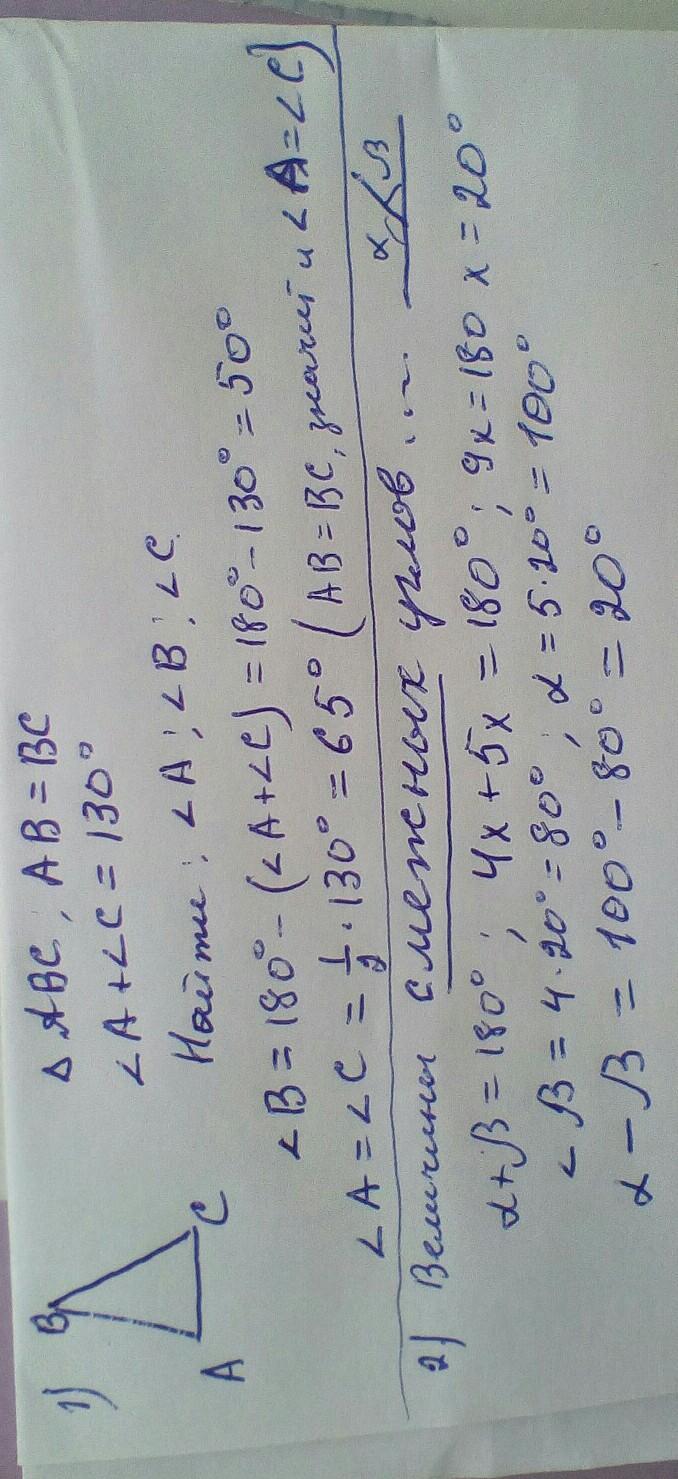 1)
B
A
C
Δ ABC, AB = BC
∠A+∠C = 130°
Найти: ∠A; ∠B; ∠C.
∠B = 180° - (∠A+∠C) = 180° - 130° = 50°
∠A = ∠C = 1/2 · 130° = 65° (AB = BC, значит и ∠A = ∠C)
2) Величины смежных углов ...
α β
α+β = 180°; 4x + 5x = 180°; 9x = 180 x = 20°
∠β = 4·20° = 80°; α = 5·20° = 100°
α - β = 100° - 80° = 20°